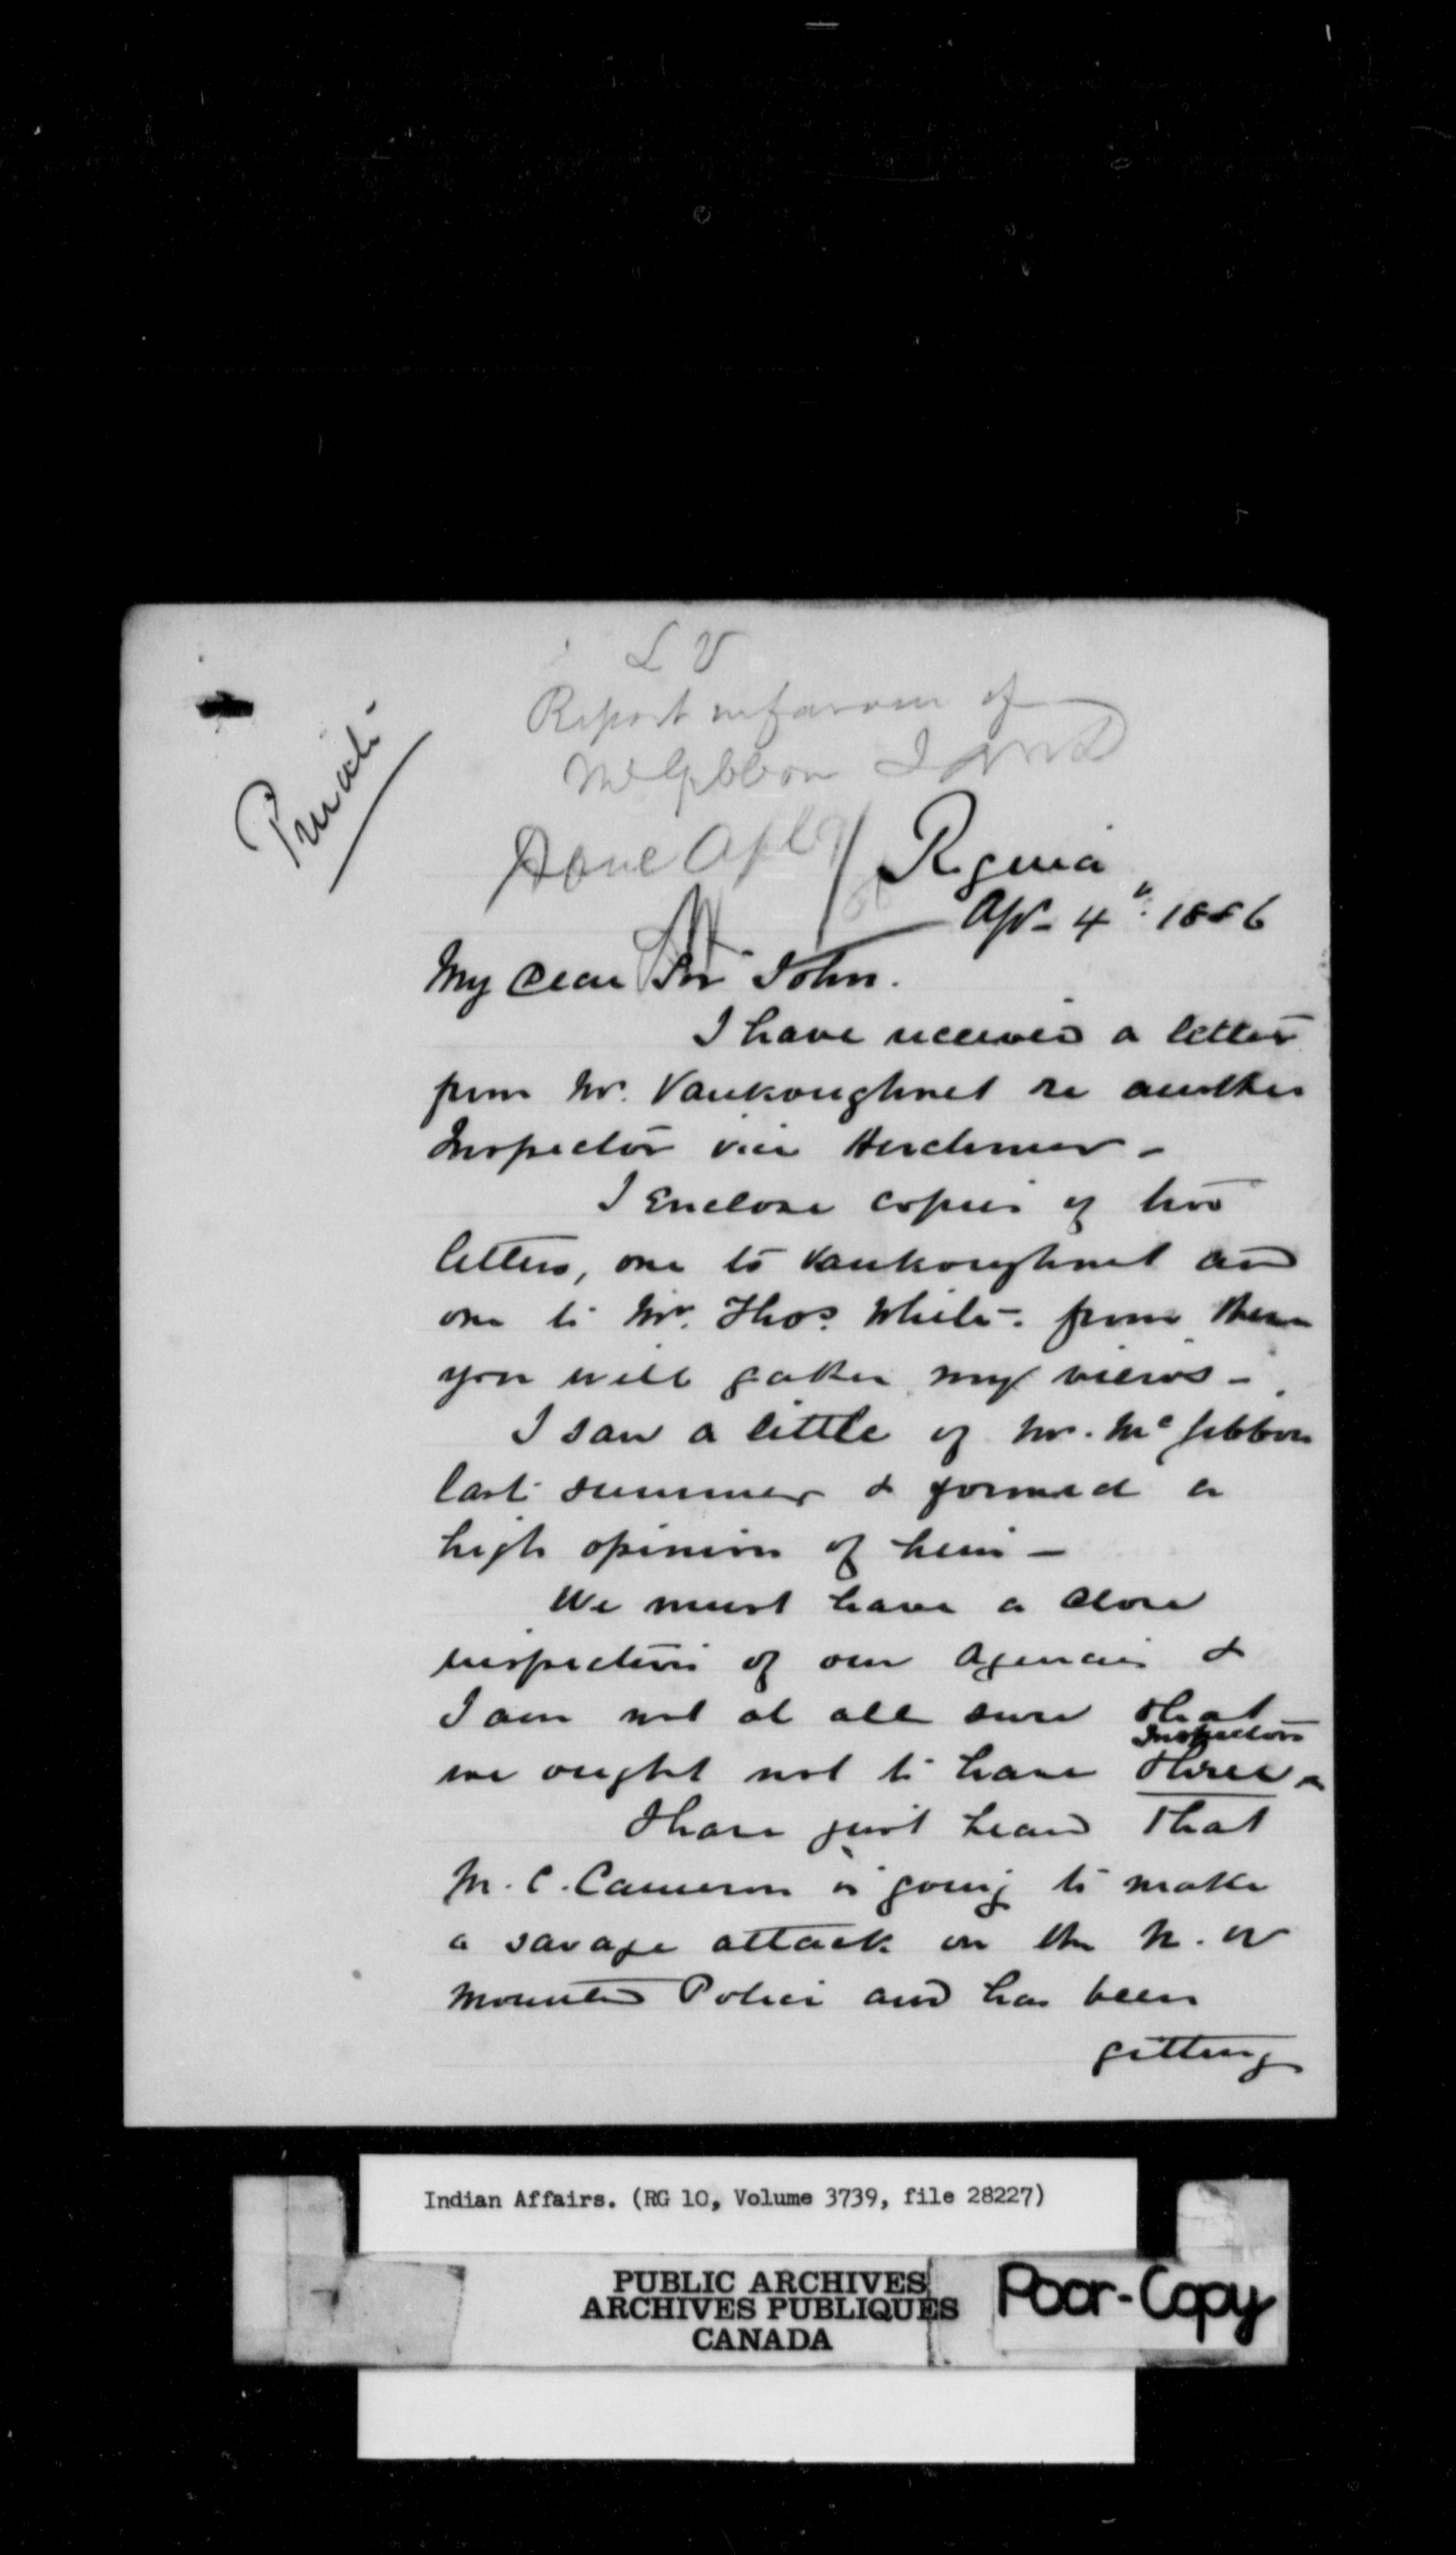 L V
Report in favour of
McGibbon
Private
Done Apl
Regina
Apr- 4th. 1886
My Dear Sir John.
I have received a letter
from Mr. Vankoughnet re another
Inspector vice Herchmer -
I Enclose copies of two
letters, one to Vankoughnet and
one to Mr. Thos. White - from them
you will gather my views -
I saw a little of Mr. McGibbon
last summer & formed a
high opinion of him -
We must have a close
inspection of our Agencies &
I am not at all sure that
Inspectors
we ought not to have three -
I have just heard that
M. C. Cameron is going to make
a savage attack on the N. W
Mounted Police and has been
getting
Indian Affairs. (RG 10, Volume 3739, file 28227)
PUBLIC ARCHIVES
ARCHIVES PUBLIQUES
CANADA
Poor-Copy